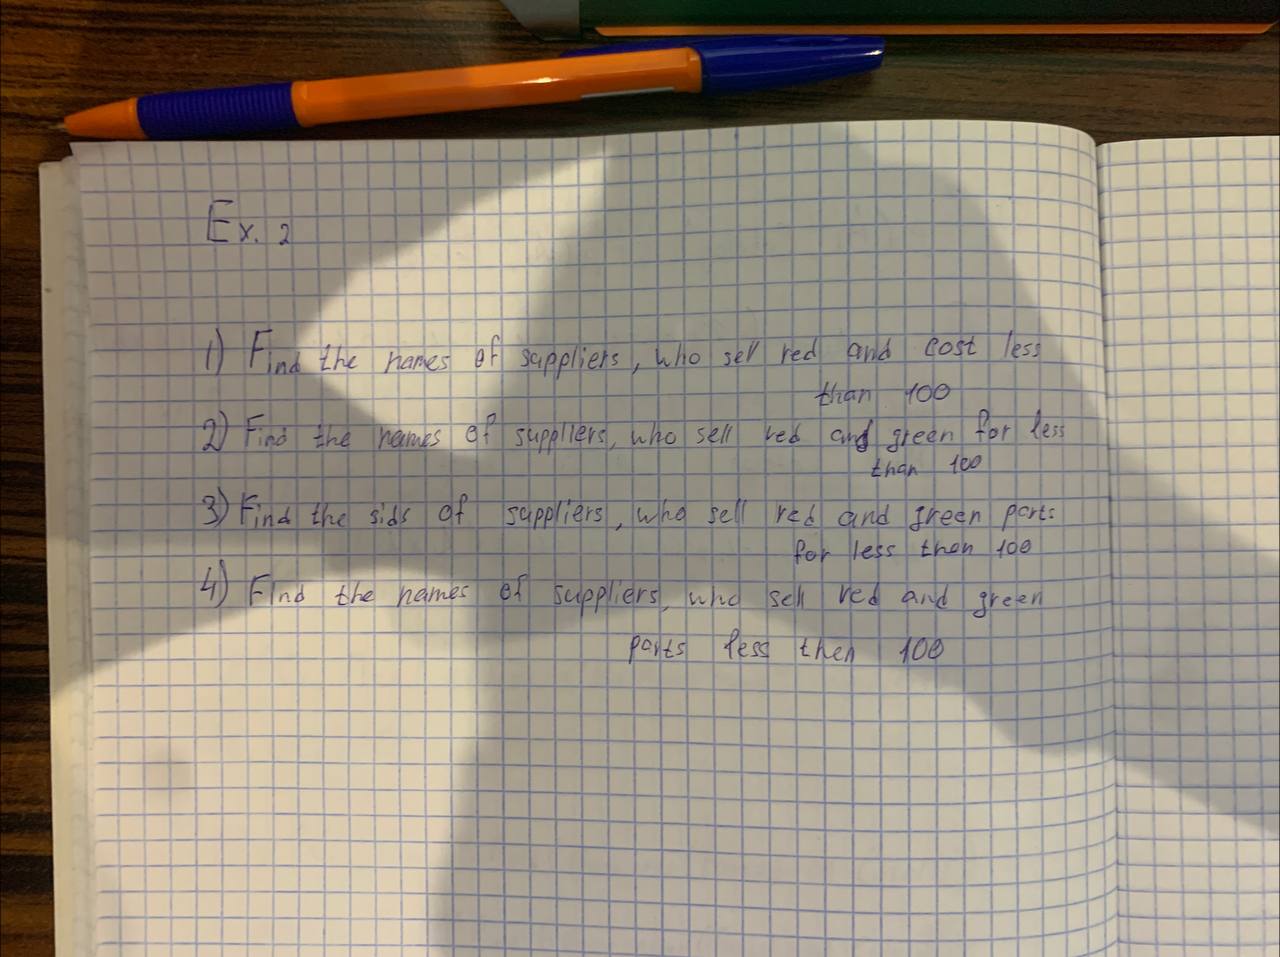 Ex. 2
1) Find the names of suppliers, who sell red and cost less
than 100
2) Find the names of suppliers, who sell red and green for less
than 100
3) Find the sids of suppliers, who sell red and green parts
for less then 100
4) Find the names of suppliers, who sell red and green
parts less then 100